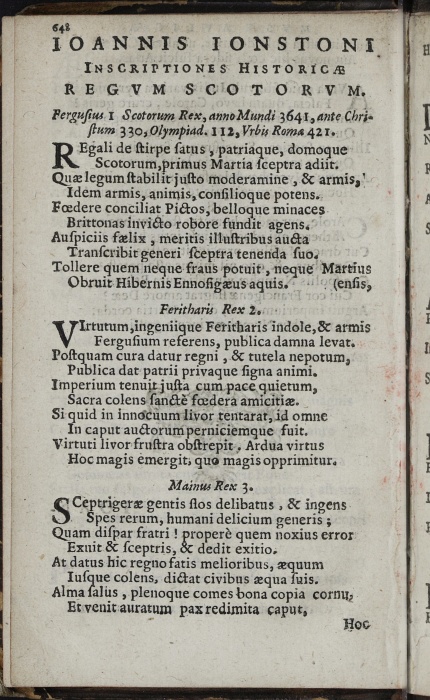 648
IOANNIS IONSTONI
INSCRIPTIONES HISTORICÆ
REGVM SCOTORVM.
Fergusius I Scotorum Rex, anno Mundi 3641, ante Chri-
stum 330, Olympiad. 112, Vrbis Romæ 421.
REgali de stirpe satus, patriaque, domoque
Scotorum, primus Martia sceptra adiit.
Quæ legum stabilit justo moderamine, & armis,
Idem armis, animis, consilioque potens.
Fœdere conciliat Pictos, belloque minaces
Brittonas invicto robore fundit agens.
Auspiciis fælix, meritis illustribus aucta
Transcribit generi sceptra tenenda suo.
Tollere quem neque fraus potuit, neque Martius
Obruit Hibernis Ennosigæus aquis. (ensis,
Feritharis Rex 2.
VIrtutum, ingeniique Feritharis indole, & armis
Fergusium referens, publica damna levat.
Postquam cura datur regni, & tutela nepotum,
Publica dat patrii privaque signa animi.
Imperium tenuit justa cum pace quietum,
Sacra colens sanctè fœdera amicitiæ.
Si quid in innocuum livor tentarat, id omne
In caput auctorum perniciemque fuit.
Virtuti livor frustra obstrepit. Ardua virtus
Hoc magis emergit, quo magis opprimitur.
Mainus Rex 3.
SCeptrigeræ gentis flos delibatus, & ingens
Spes rerum, humani delicium generis;
Quam dispar fratri! properè quem noxius error
Exuit & sceptris, & dedit exitio.
At datus hic regno fatis melioribus, æquum
Iusque colens, dictat civibus æqua suis.
Alma salus, plenoque comes bona copia cornu,
Et venit auratum pax redimita caput,
Hoc